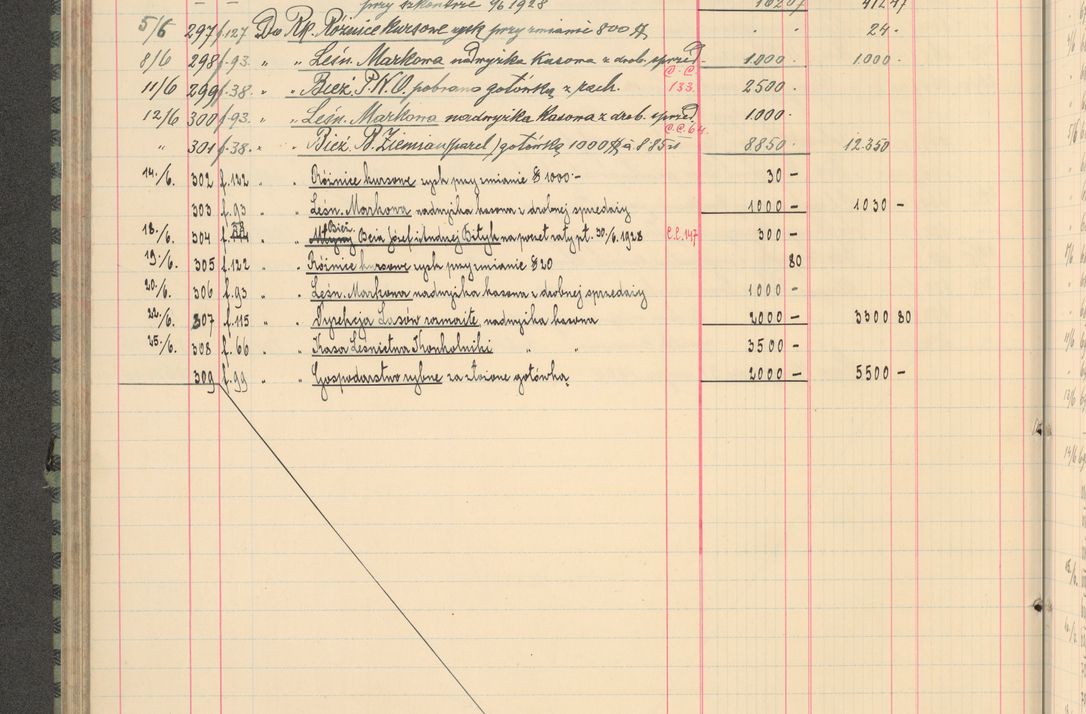 przy szkontrze 4/6 1928
5/6 297 f.127 Do Rp. Różnice kursowe zysk przy zmianie 800 $ . . 24 -
8/6 298 f.93. " " Leśn. Markowa nadwyżka kasowa z drob. sprzed. 1.000 - 1000 -
11/6 299 f.38. " " Bież. P.K.O. pobrano gotówką z rach. C.C. 133. 2500 -
12/6 300 f.93. " " Leśn. Markowa nadwyżka kasowa z drob. sprzed. 1.000 -
" 301 f.38. " Bież. B. Ziemian (parcel) gotówką 1000 $ à 8.85 zł C.C. 64. 8850 - 12.350
14./6. 302 f.122 " " Różnice kursowe zysk przy zmianie $ 1000 - 30 -
303 f.93 " " Leśn. Markowa nadwyżka kasowa z drobnej sprzedaży 1000 - 1030 -
18./6. 304 f. 38 " " Bież. Bcia Józef i Andrzej Bityk na poczet raty pt. 30./6. 1928 C.C. 147 300 -
19./6. 305 f.122 " " Różnice kursowe zysk przy zmianie $ 20 80
20./6. 306 f.93 " " Leśn. Markowa nadwyżka kasowa z drobnej sprzedaży 1000 -
22./6. 307 f.115 " " Dyrekcja Lasów rozmaite, nadwyżka kasowa 2000 - 3300 80
25./6. 308 f.66 " " Kasa Leśnictwa " " 3500 -
309 f.99 " " Gospodarstwo rybne za złożone gotówką 2000 - 5500 -